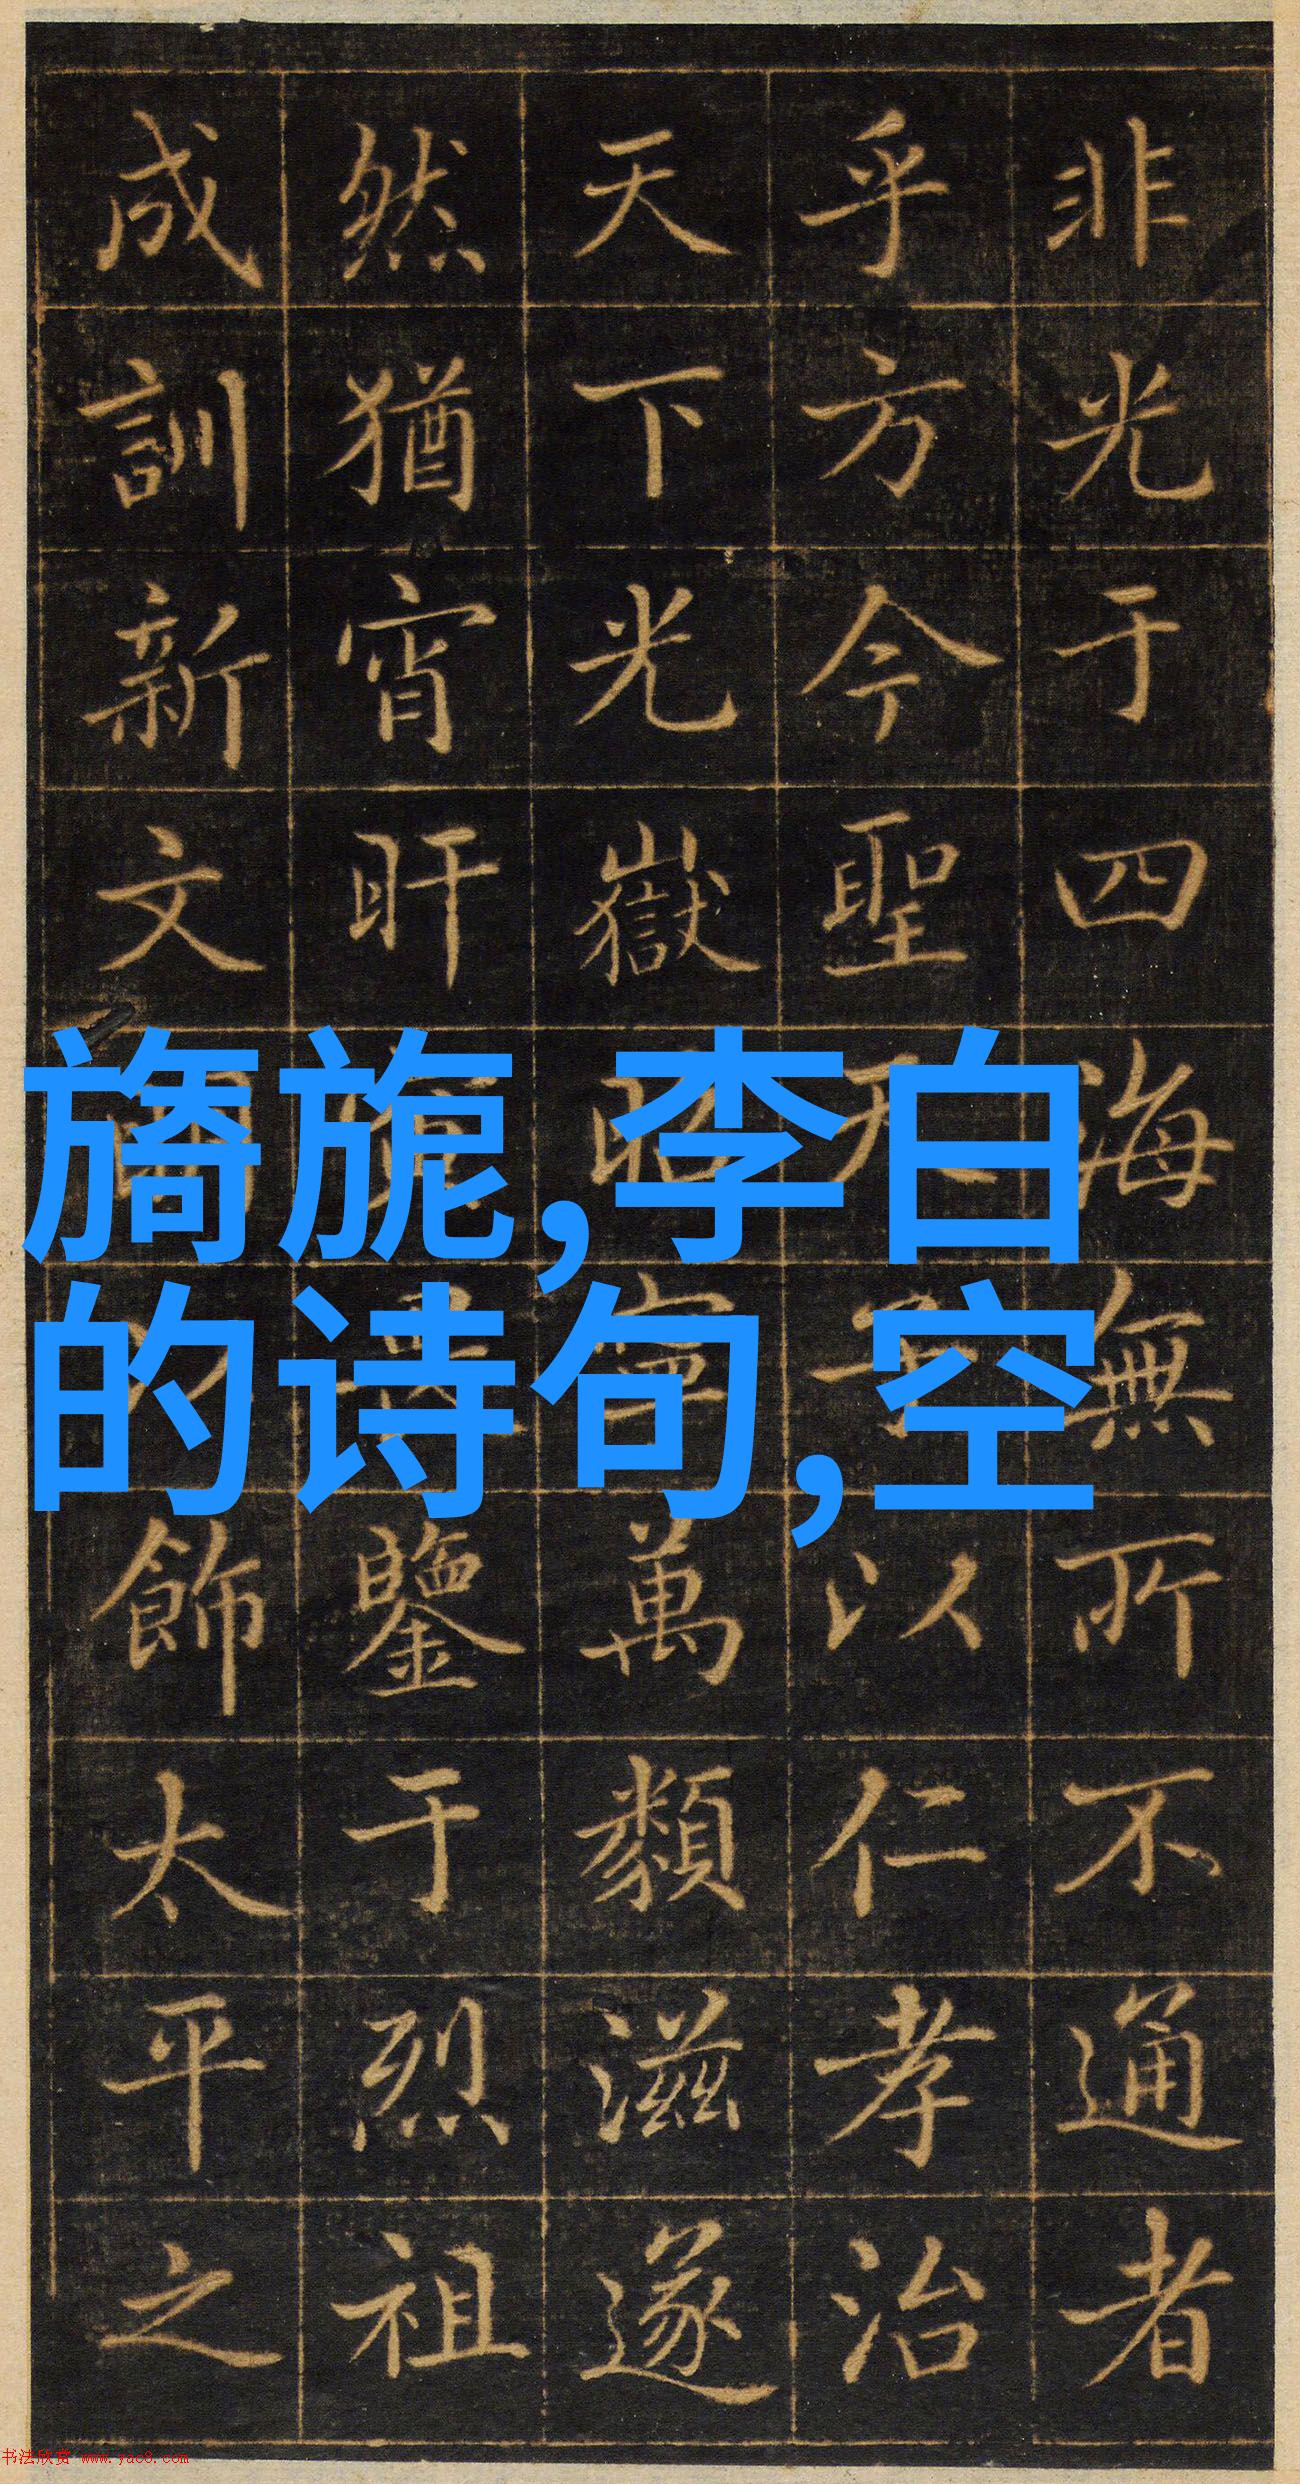 非光于四海無所不通者
乎方今聖天子以仁孝治
天下光嶽昭寧萬類滋遂
然猶宵旰鑒于烈祖
成訓新文飾太平之
旖旎,李白
的诗句,空
书法欣赏 www.yac8.com